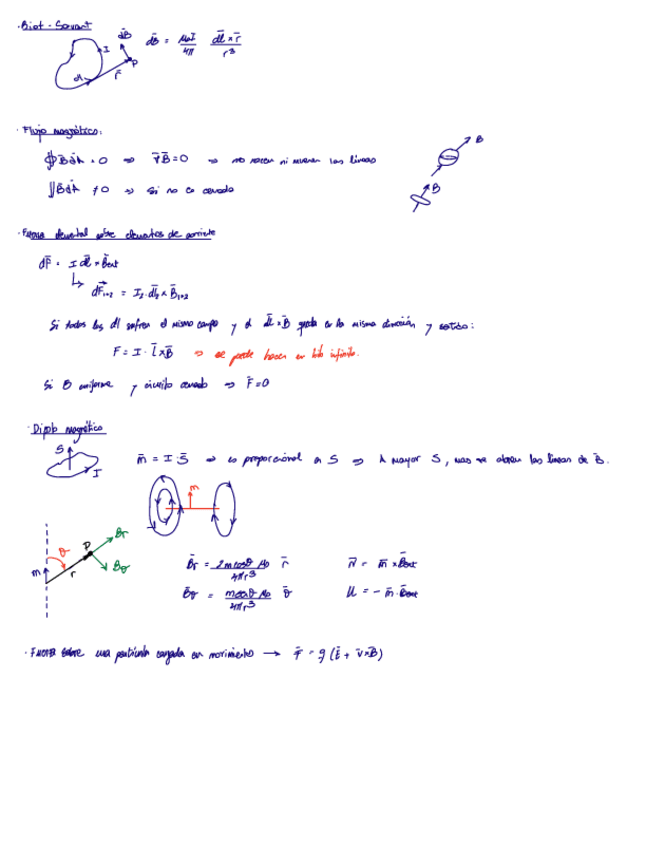 · Biot - Savart
dB̄ = μ₀I/4π · dl̄ × r̄/r³
I dB̄ P dl r̄
· Flujo magnético:
∯ B̄ dĀ = 0 ⇒ ∇̄ B̄ = 0 ⇒ no nacen ni mueren las líneas
B
∬ B̄ dĀ ≠ 0 ⇒ Si no es cerrada
B
· Fuerza elemental sobre elementos de corriente
dF̄ = I dl̄ × B̄ext
↳ dF̄₁→₂ = I₂ · dl̄₂ × B̄₁→₂
Si todos los dl sufren el mismo campo y el dl̄ × B̄ queda en la misma dirección y sentido:
F = I · l̄ × B̄ ⇒ se puede hacer en hilo infinito.
Si B uniforme y circuito cerrado ⇒ F̄ = 0
· Dipolo magnético
S I
m̄ = I · S̄ ⇒ es proporcional a S ⇒ A mayor S, mas se abren las líneas de B̄.
m
P Br θ Bθ m r
B̄r = 2m cosθ μ₀/4πr³ r̄
N̄ = m̄ × B̄ext
B̄θ = m senθ μ₀/4πr³ θ̄
U = - m̄ · B̄ext
· Fuerza sobre una partícula cargada en movimiento → F̄ = q (Ē + v̄ × B̄)